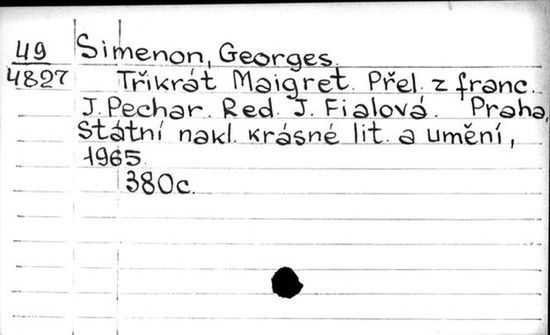 49
4827
Simenon, Georges.
Třikrát Maigret. Přel. z franc.
J. Pechar. Red. J. Fialová. Praha,
Státní nakl. krásné lit. a umění,
1965
380c.